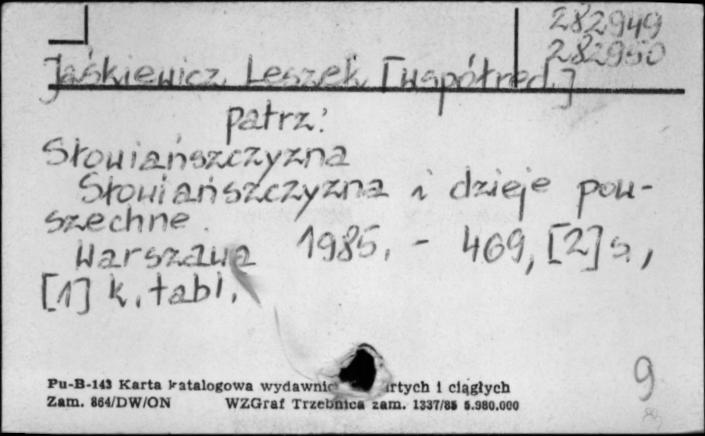 282949
282950
Jaśkiewicz Leszek [współred.]
patrz:
Słowiańszczyzna
Słowiańszczyzna i dzieje pow-
szechne.
Warszawa 1985. - 469, [2] s.,
[1] k. tabl.
9
Pu-B-143 Karta katalogowa wydawnic rtych i ciągłych
Zam. 864/DW/ON WZGraf Trzebnica zam. 1337/85 5.980.000